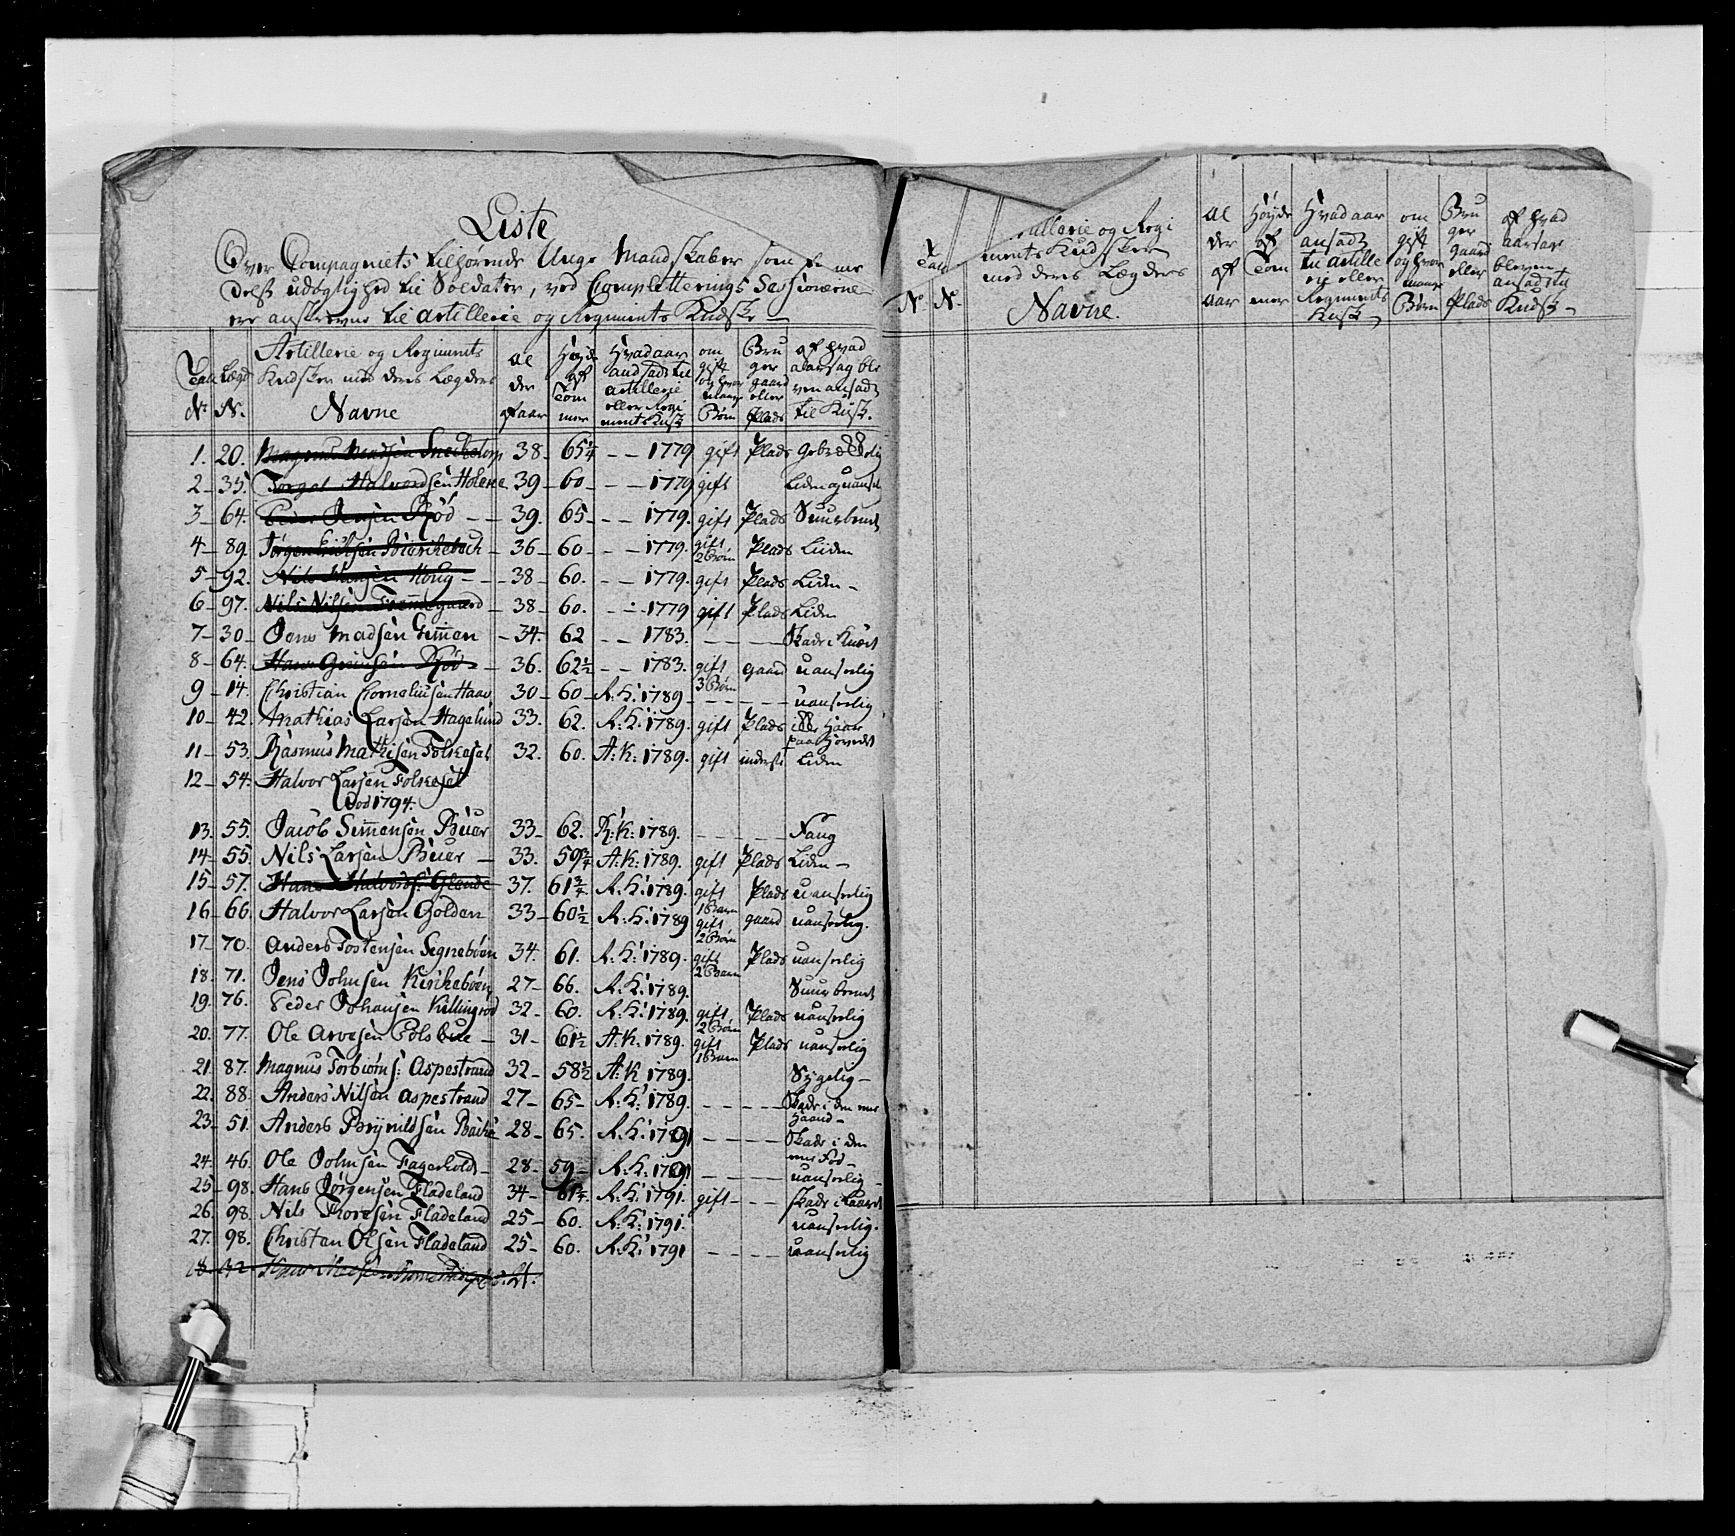 Liste
Over Compagniets tilhørende Unge Mandskaber som for me
delst udøgtighed til Soldater, ved Completterings Sessionerne
ere anskrevne til artillerie og Regiments Kudske
Tall No Lægd No. Artillerie og Regiments Kudsker med deres Lægders Navne al der af aar Høyde af Tom mer Hvad aar ansadt til artillerie eller Regi ments Kusk om gift og hvor mange Børn Bru ger gaard eller Plads af hvad aarsag ble ven ansadt til Kusk.
1. 20. Magnus Madsen 38 65 1/4 - - 1779 gift Plads
2 - 35. Torgal Halvordsen 39 - 60 - - - 1779 gift Liden
3 - 64. Peder Jensen Rød - - 39. 65 - - - 1779. gift Plads
4 - 89. Jørgen 36 - 60 - - 1779. gift 2 Børn Plads Liden
5 - 92. Nils Hansen Houg - - - 38 - 60. - - 1779. gift Plads Liden -
6 - 97. Nils Nilsen - 38 - 60. - - 1779 gift Plads Liden
7 - 30 - Jens Madsen - 34 - 62 - - 1783. - - - Skade i Knæet
8 - 64. Hans Rød - - 36. 62 1/2 - - 1783. gift 3 Børn gaard uanseelig
9 - 14. Christian Corneliusen Haav 30 - 60 - R: K: 1789 - - - uanseelig
10 - 42. Mathias Larsen Hagelund 33. 62. R: K: 1789. gift Plads Haar paa Hovedet
11 - 53. Rasmus Mathisen Folkesal 32. 60. A: K: 1789. gift inderst Liden
12 - 54. Halvor Larsen Folkesel
Død 1794.
13. 55. Jacob Simensen Buer 33 - 62. R: K: 1789. - - -
14 - 55. Nils Larsen Buer - 33. 59 3/4 A: K: 1789. gift Plads Liden -
15 - 57. Hans Halvords: Glende 37. 61 3/4 R: K: 1789. gift 1 Barn Plads uanseelig
16 - 66. Halvor Larsen Golden 33 - 60 1/2 R: K: 1789 gift 2 Børn gaard uanseelig.
17 - 70. Anders Tostensen Segneböen 34. 61. R: K: 1789. gift 2 Barn Plads uanseelig
18. 71. Jens Johnsen Kirkeböen 27 - 66. R: K: 1789.
19. 76. Peder Johansen Killingrød 32 - 60. R: K: 1789. gift 2 Børn Plads uanseelig
20. 77. Ole Arvesen - 31 - 61 1/2 A: K. 1789. gift 1 Barn Plads uanseelig
21. 87. Magnus Torbiørns: Aspestrand 32 - 58 1/2 A: K 1789. Sygelig -
22. 88. Anders Nilsen Aspestrand 27 - 65 - R: K: 1789. - - - Skade i den ene Haand -
23 - 51. Anders Brynildsen 28 - 65. R: K: 1791 - - - Skade i den ene Fod -
24. 46. Ole Johnsen Fagerhold - 28 - 59 - R: K: 1791 - - - uanseelig -
25 - 98. Hans Jørgensen Fladeland 34 - R: K: 1791. gift - - Skade i Laaret
26. 98. Nils Toresen Fladeland 25 - 60. R: K: 1791. uanseelig.
27. 98. Christen Olsen Fladeland 25 - 60. R: K: 1791 - - - uanseelig
Tall No. No. tillerie og Regi ments Kudsker med deres Lægders Navne. al der af aar Høyde af Tom mer Hvad aar ansadt til artille rie eller Regiments Kusk om gift og hvor mange Børn Bru ger gaard eller Plads af hvad aarsag bleven ansadt til Kudsk -